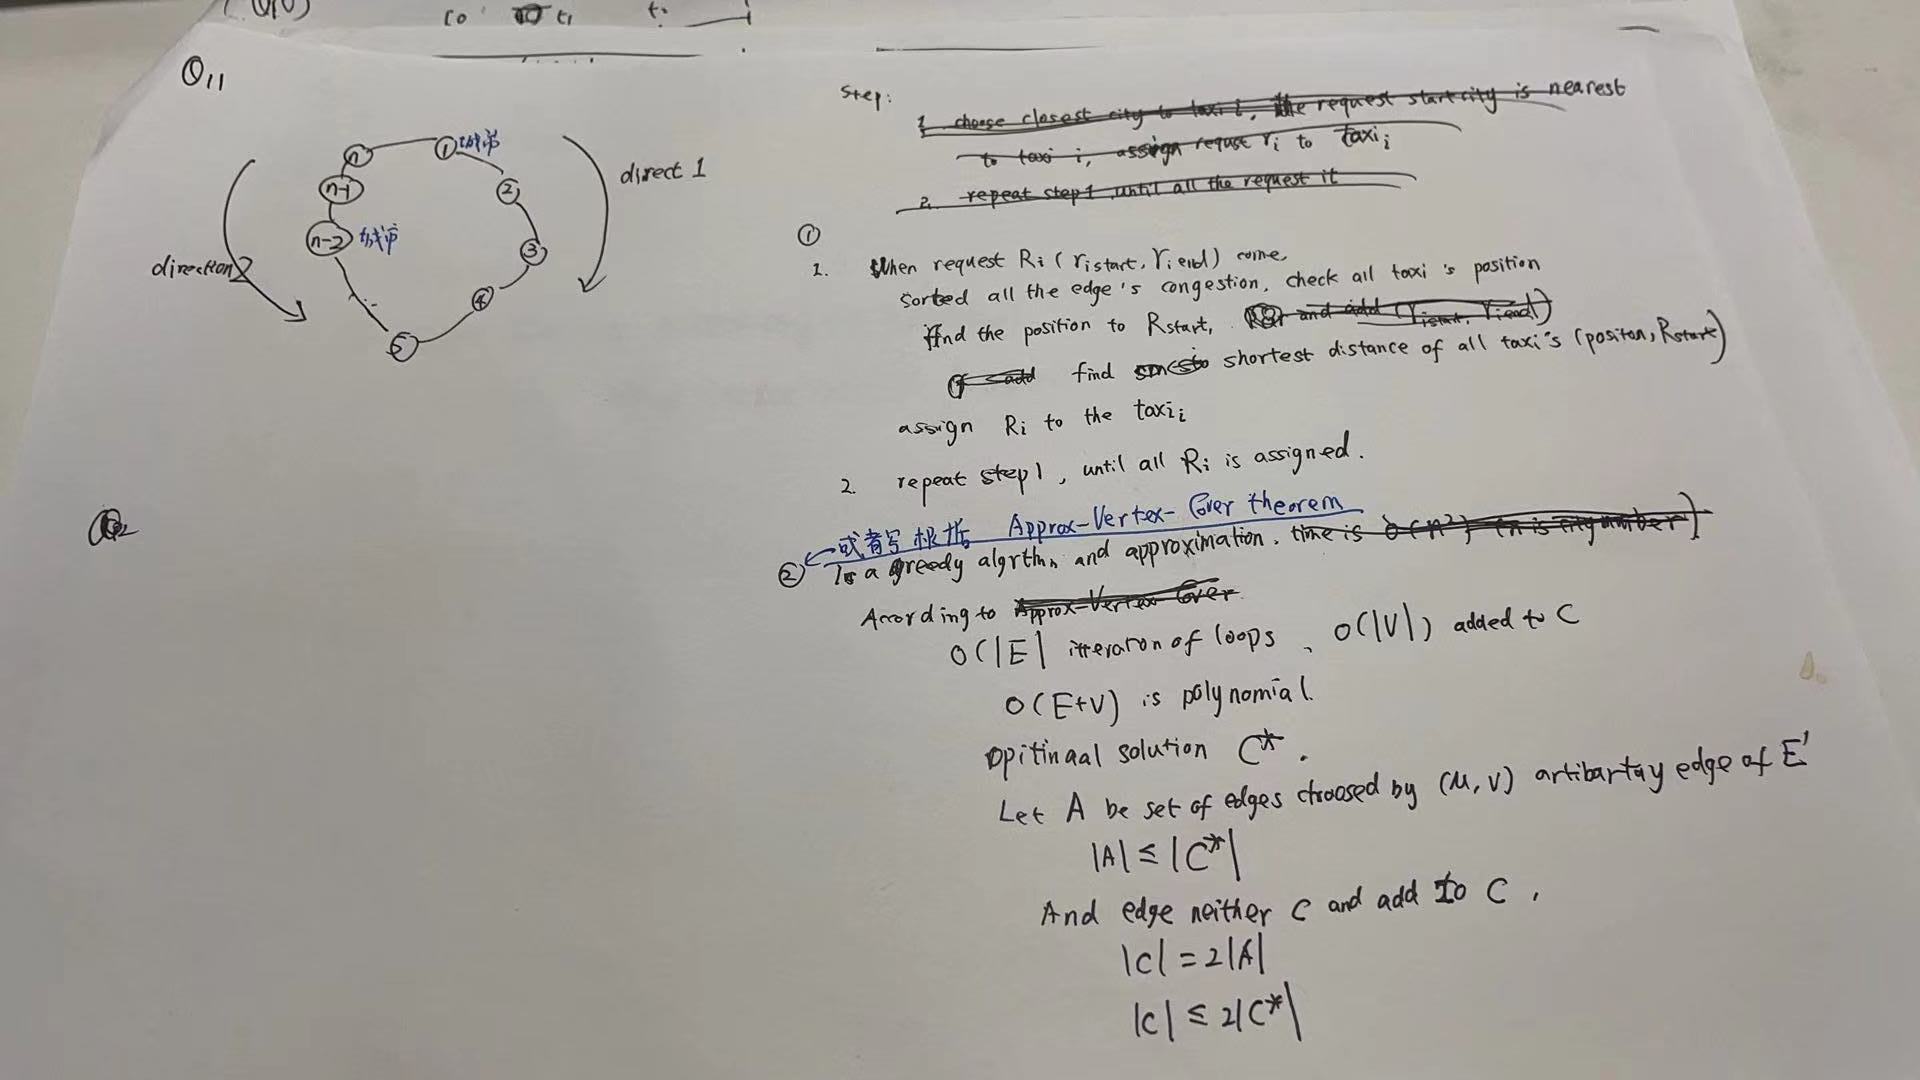 Q11
n
1
城市
2
3
4
5
n-2
城市
n-1
direct 1
direction 2
Step:
1. choose closest city to taxi i, the request start city is nearest
to taxi i, assign requse ri to taxi i
2. repeat step 1, until all the request it
①
1. When request Ri (ri start, ri end) come,
sorted all the edge's congestion, check all taxi's position
find the position to Rstart, and add (ristart, riend)
add find shortest distance of all taxi's (positon, Rstart)
assign Ri to the taxi i
2. repeat step 1, until all Ri is assigned.
或者写根据 Approx-Vertex-Cover theorem
② Is a greedy algrthm and approximation. time is O(n²) (n is city number)
According to Approx-Vertex Cover
O(|E| itteraton of loops, O(|V|) added to C
O(E+V) is polynomial.
Opitinaal solution C*.
Let A be set of edges choosed by (u, v) artibartay edge of E'
|A| ≤ |C*|
And edge neither C and add to C,
|C| = 2|A|
|C| ≤ 2|C*|